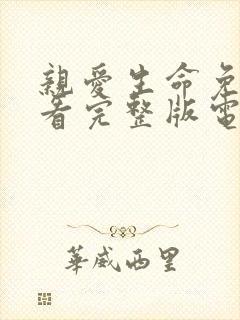 親愛生命免
看完整版電
華威西里